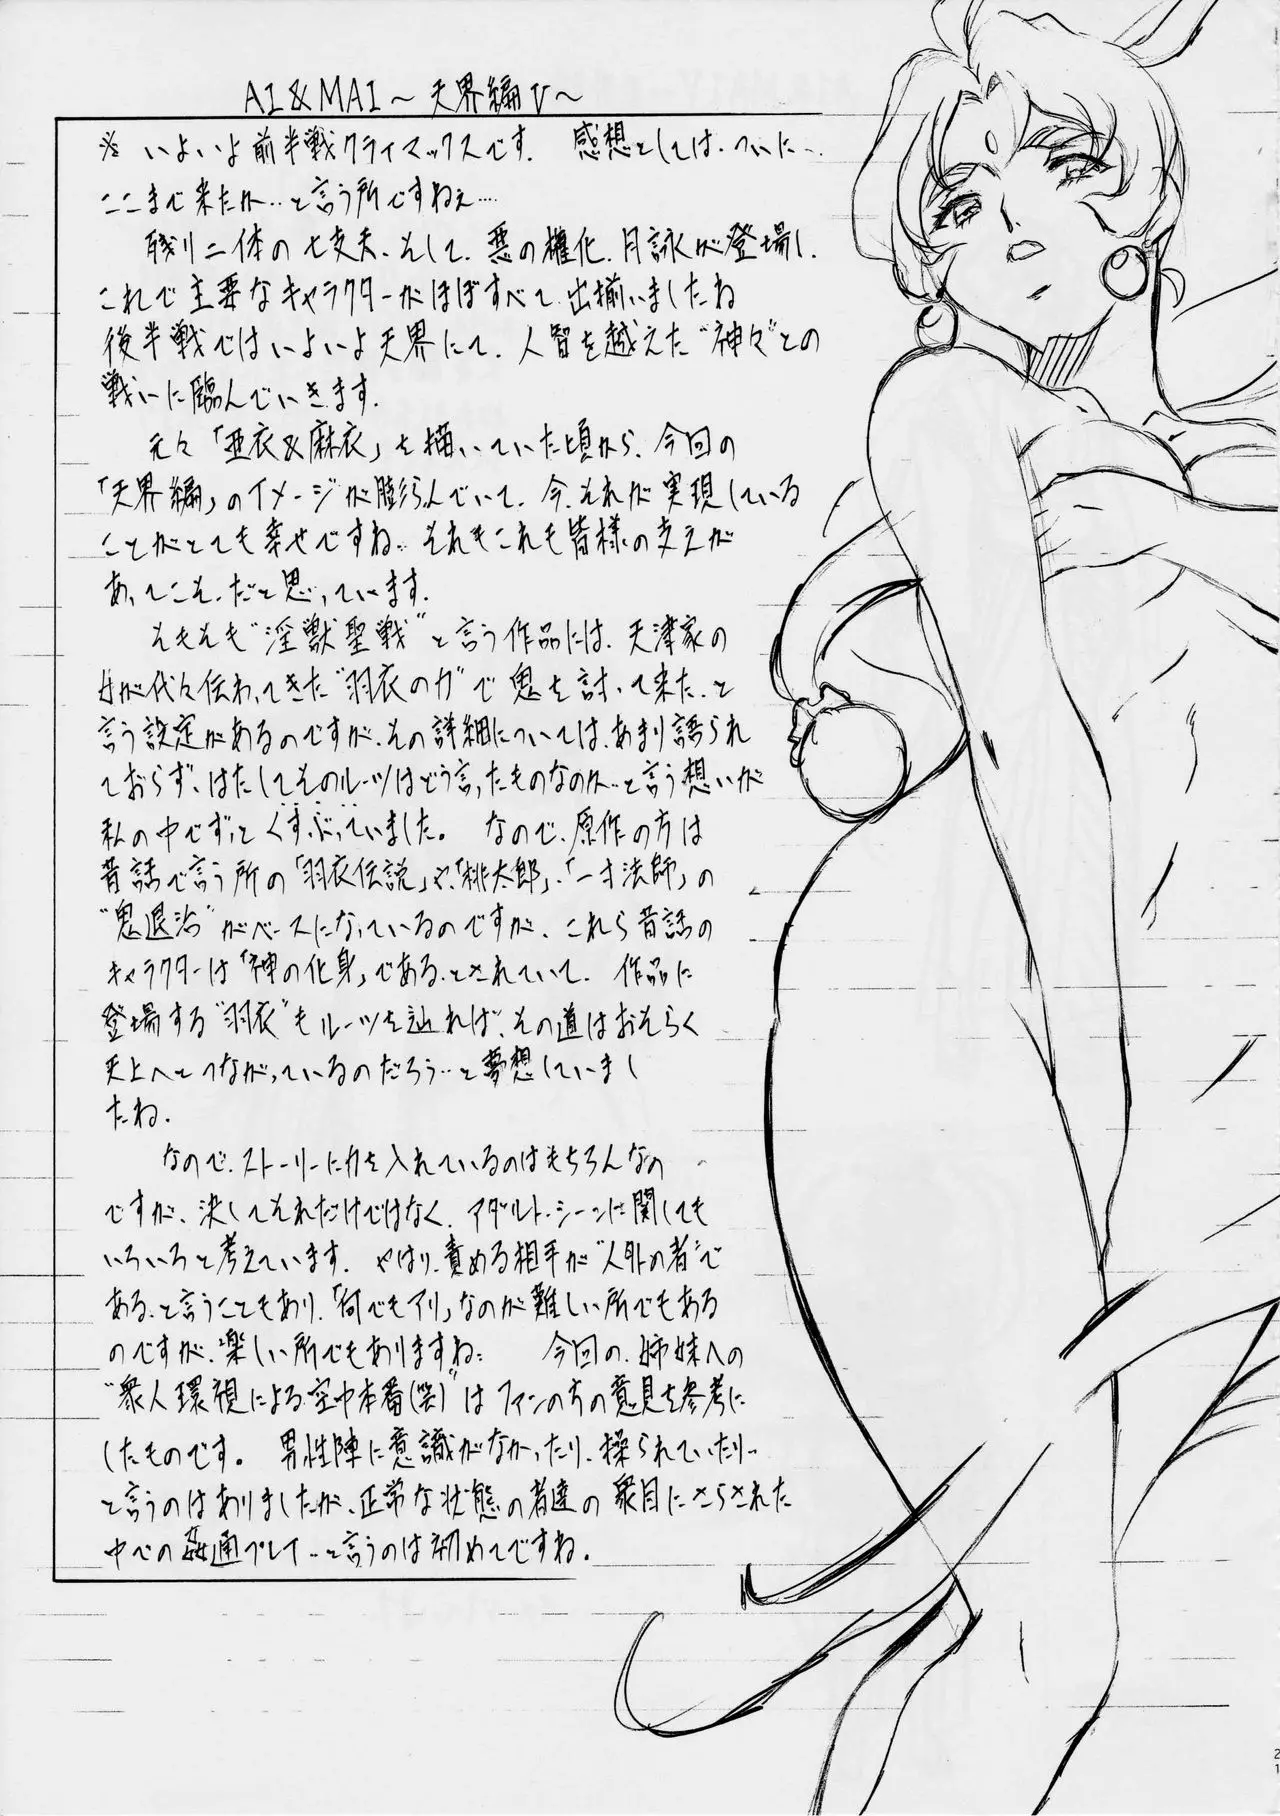 AI&MAI～天界編V～
※いよいよ前半戦クライマックスです. 感想としては、ついに…
ここまで来たか…と言う所ですねぇ…
残り二体の七支夭、そして、悪の権化、月詠が登場し、
これで主要なキャラクターがほぼすべて出揃いましたね
後半戦ではいよいよ天界にて、人智を越えた"神々"との
戦いに臨んでいきます.
元々「亜衣&麻衣」を描いていた頃から、今回の
「天界編」のイメージが膨らんでいて、今、それが実現している
ことがとても幸せですね… それもこれも皆様の支えが
あってこそ、だと思っています.
そもそも"淫獣聖戦"と言う作品には、天津家の
女が代々伝わってきた"羽衣の力"で鬼を討って来た、と
言う設定があるのですが、その詳細については、あまり語られ
ておらず、はたしてそのルーツはどう言ったものなのか…と言う想いが
私の中でずっとくすぶっていました。 なので、原作の方は
昔話で言う所の「羽衣伝説」や、「桃太郎」、「一寸法師」の
"鬼退治"がベースになっているのですが、これら昔話の
キャラクターは「神の化身」である、とされていて、作品に
登場する"羽衣"もルーツを辿れば、その道はおそらく
天上へとつながっているのだろう…と夢想していまし
たね.
なので、ストーリーに力を入れているのはもちろんなの
ですが、決してそれだけではなく、アダルト・シーンに関しても
いろいろと考えています. やはり、責める相手が"人外の者"で
ある、と言うこともあり、「何でもアリ」なのが難しい所でもある
のですが、楽しい所でもありますね: 今回の、姉妹への
"衆人環視による空中本番(笑)"はファンの方の意見を参考に
したものです。 男性陣に意識がなかったり、操られていたり…
と言うのはありましたが、正常な状態の者達の衆目にさらされた
中での姦通プレイ…と言うのは初めてですね.
21